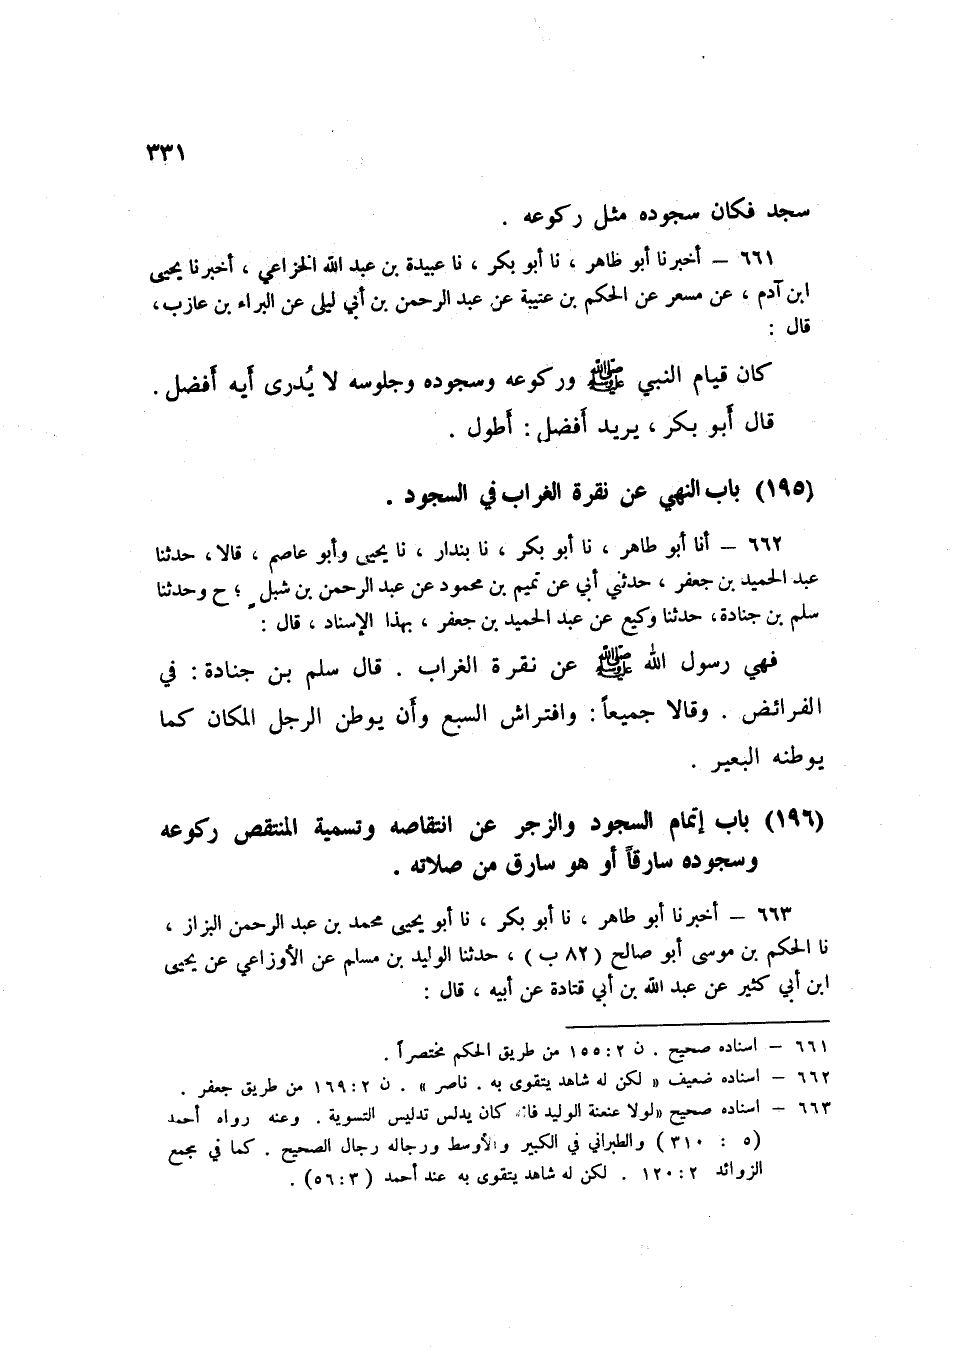 ٣٣١
سجد فكان سجوده مثل ركوعه .
٦٦١ – أخبرنا أبو ظاهر ، نا أبو بكر ، نا عبيدة بن عبد الله الخزاعي ، أخبرنا يحيى
ابن آدم ، عن مسعر عن الحكم بن عتيبة عن عبد الرحمن بن أبي ليلى عن البراء بن عازب ،
قال :
كان قيام النبي ﷺ وركوعه وسجوده وجلوسه لا يُدرى أَيه أَفضل .
قال أَبو بكر ، يريد أَفضل : أَطول .
(١٩٥) باب النهي عن نقرة الغراب في السجود .
٦٦٢ – أنا أبو طاهر ، نا أبو بكر ، نا بندار ، نا يحيى وأبو عاصم ، قالا ، حدثنا
عبد الحميد بن جعفر ، حدثني أبي عن تميم بن محمود عن عبد الرحمن بن شبل ؛ ح وحدثنا
سلم بن جنادة، حدثنا وكيع عن عبد الحميد بن جعفر ، بهذا الإسناد ، قال :
فهي رسول الله ﷺ عن نقرة الغراب . قال سلم بن جنادة : في
الفرائض . وقالا جميعاً : وافتراش السبع وأَن يوطن الرجل المكان كما
يوطنه البعير .
(١٩٦) باب إتمام السجود والزجر عن انتقاصه وتسمية المنتقص ركوعه
وسجوده سارقاً أو هو سارق من صلاته .
٦٦٣ – أخبرنا أبو طاهر ، نا أبو بكر ، نا أبو يحيى محمد بن عبد الرحمن البزاز ،
نا الحكم بن موسى أبو صالح ( ٨٢ ب ) ، حدثنا الوليد بن مسلم عن الأوزاعي عن يحيى
ابن أبي كثير عن عبد الله بن أبي قتادة عن أبيه ، قال :
٦٦١ – اسناده صحيح . ن ٢ : ١٥٥ من طريق الحكم مختصراً .
٦٦٢ – اسناده ضعيف « لكن له شاهد يتقوى به . ناصر » . ن ٢ : ١٦٩ من طريق جعفر .
٦٦٣ – اسناده صحيح «لولا عنعنة الوليد كان يدلس تدليس التسوية . وعنه رواه أحمد
( ٥ : ٣١٠ ) والطبراني في الكبير والأوسط ورجاله رجال الصحيح . كما في مجمع
الزوائد ٢ : ١٢٠ . لكن له شاهد يتقوى به عند أحمد ( ٣ : ٥٦) .